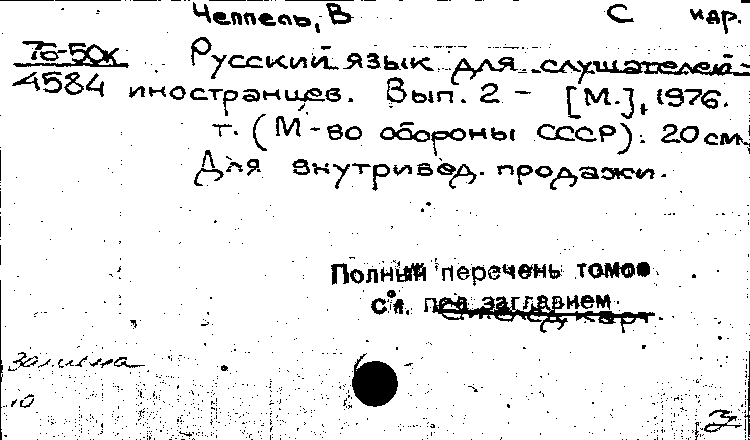 Чеппель, В С идр.
76-50к Русский язык для слушателей-
4584 иностранцев. Вып. 2 - [М.], 1976.
т. (М-во обороны СССР). 20 см.
Для внутривед. продажи.
Полный перечень томов
См. под заглавием
след. карт.
Замена
10